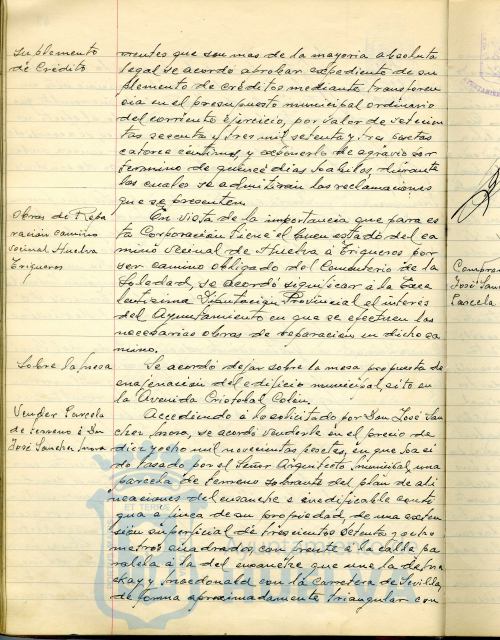 Suplemento
de Crédito
rrentes que son mas de la mayoria absoluta
legal se acordó aprobar expediente de su
plemento de créditos mediante transferen
cia en el presupuesto municipal ordinario
del corriente ejercicio, por valor de setecien
tas sesenta y tres mil setenta y tres pesetas
catorce céntimos, y exponerlo de agravio por
termino de quince dias habiles, durante
los cuales se admitirán las reclamaciones
que se presenten.
Obras de Repa
ración camino
vecinal Huelva
Trigueros
En vista de la importancia que para es
ta Corporación tiene el buen estado del ca
mino vecinal de Huelva á Trigueros por
ser camino obligado del Cementerio de la
Soledad, se acordó significar á la Exce
lentisima Diputación Provincial el interés
del Ayuntamiento en que se efectuen las
necesarias obras de reparación en dicho ca
mino.
Sobre la mesa
Se acordó dejar sobre la mesa propuesta de
enajenación del edificio municipal, sito en
la Avenida Cristobal Colón.
Vender Parcela
de terreno á Don
José Sanchez Mora
Accediendo á lo solicitado por Don José San
chez Mora, se acordó venderle en el precio de
diez y ocho mil novecientas pesetas, en que ha si
do tasado por el Señor Arquitecto municipal, una
parcela de terreno sobrante del plan de ali
neaciones del ensanche é inedificable conti
gua á finca de su propiedad, de una exten
sión superficial de trescientos setenta y ocho
metros cuadrados, con frente á la calle pa
ralela á la del ensanche que une la de
kay y Macdonald con la Carretera de Sevilla,
de forma aproximadamente triangular con
Compra
José San
Parcela